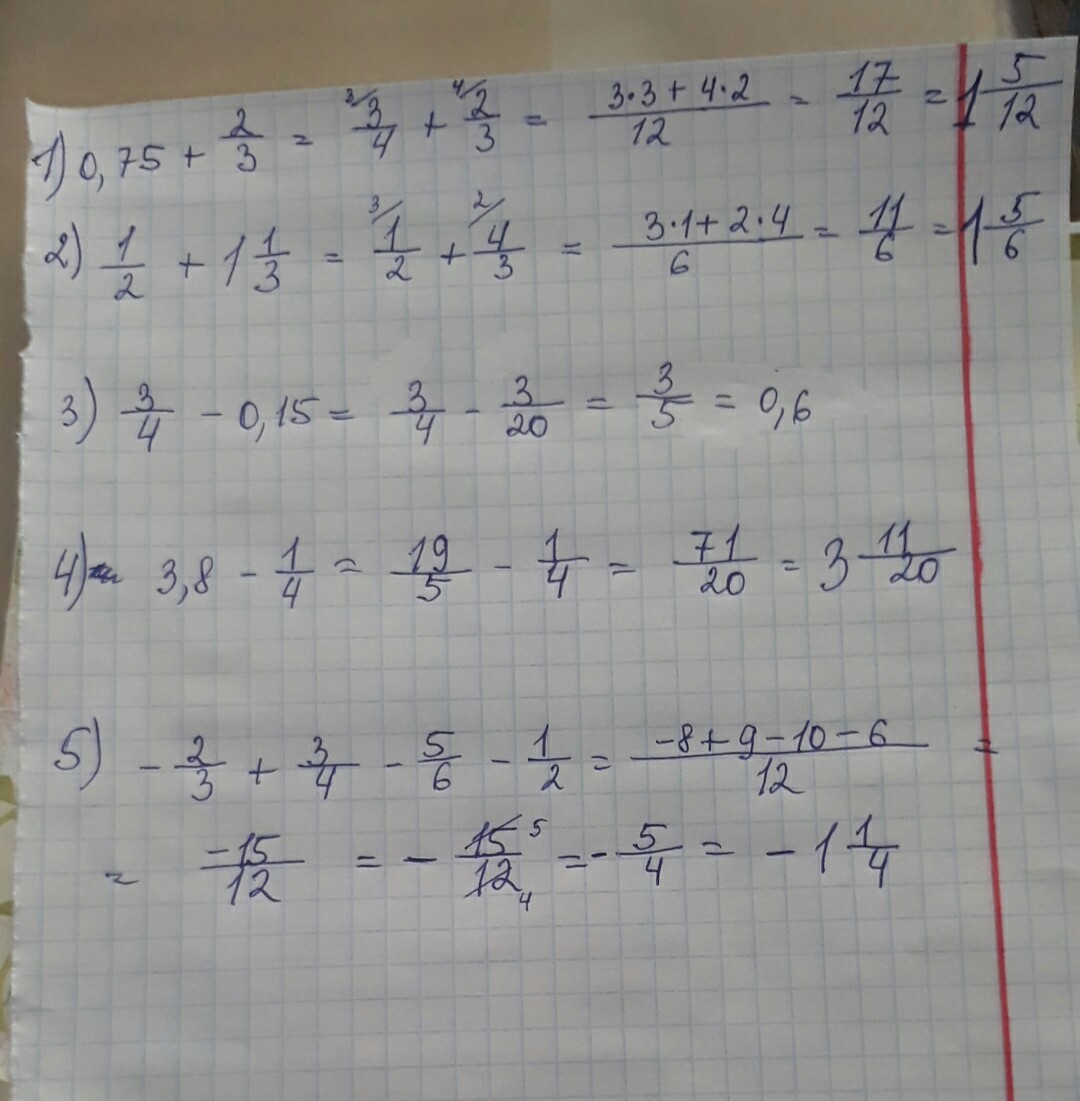 1) 0,75 + 2/3 = 3/ 3/4 + 4/ 2/3 = (3·3 + 4·2)/12 = 17/12 = 1 5/12
2) 1/2 + 1 1/3 = 3/ 1/2 + 2/ 4/3 = (3·1 + 2·4)/6 = 11/6 = 1 5/6
3) 3/4 - 0,15 = 3/4 - 3/20 = 3/5 = 0,6
4) 3,8 - 1/4 = 19/5 - 1/4 = 71/20 = 3 11/20
5) - 2/3 + 3/4 - 5/6 - 1/2 = (-8 + 9 - 10 - 6)/12 =
= -15/12 = - 15 5/12 4 = - 5/4 = - 1 1/4